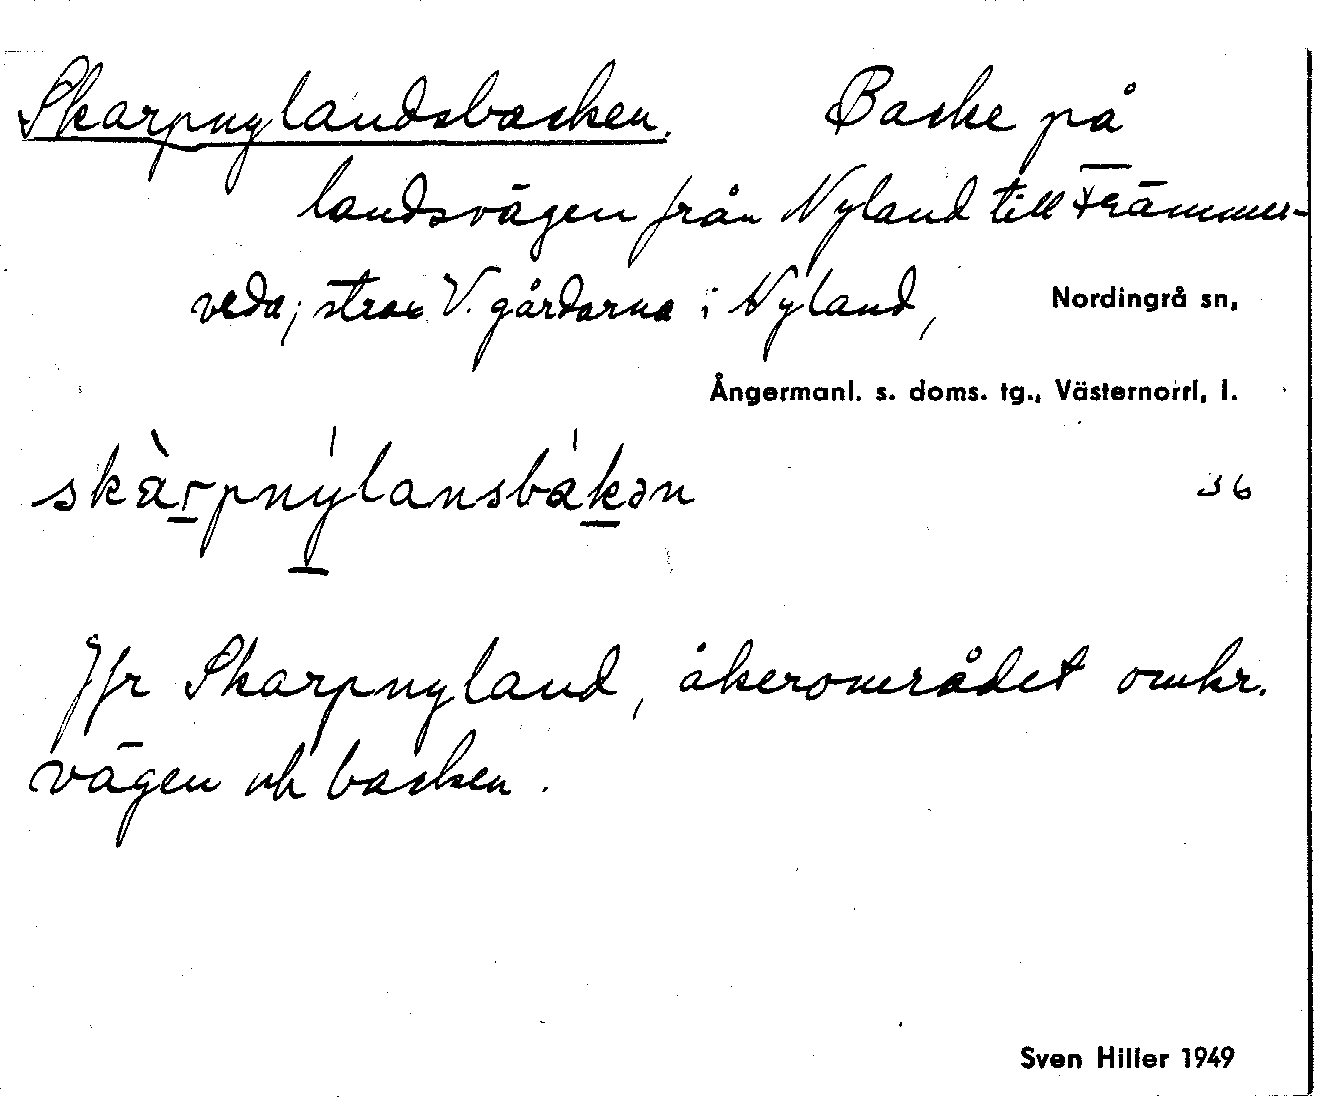 Skarpnylandsbacken. Backe på
landsvägen från Nyland till Främmer-
veda; strax V. gårdarna i Nyland,
Nordingrå sn,
Ångermanl. s. doms. tg., Västernorrl, l.
skàrpnýlansbákən
36
Jfr Skarpnyland, åkerområdet omkr.
vägen och backen.
Sven Hiller 1949